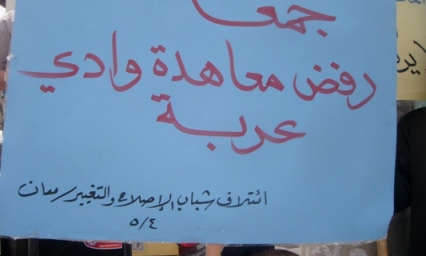 جمعة
رفض معاهدة وادي
عربة
ائتلاف شباب الإصلاح والتغيير / معان
٥/٤